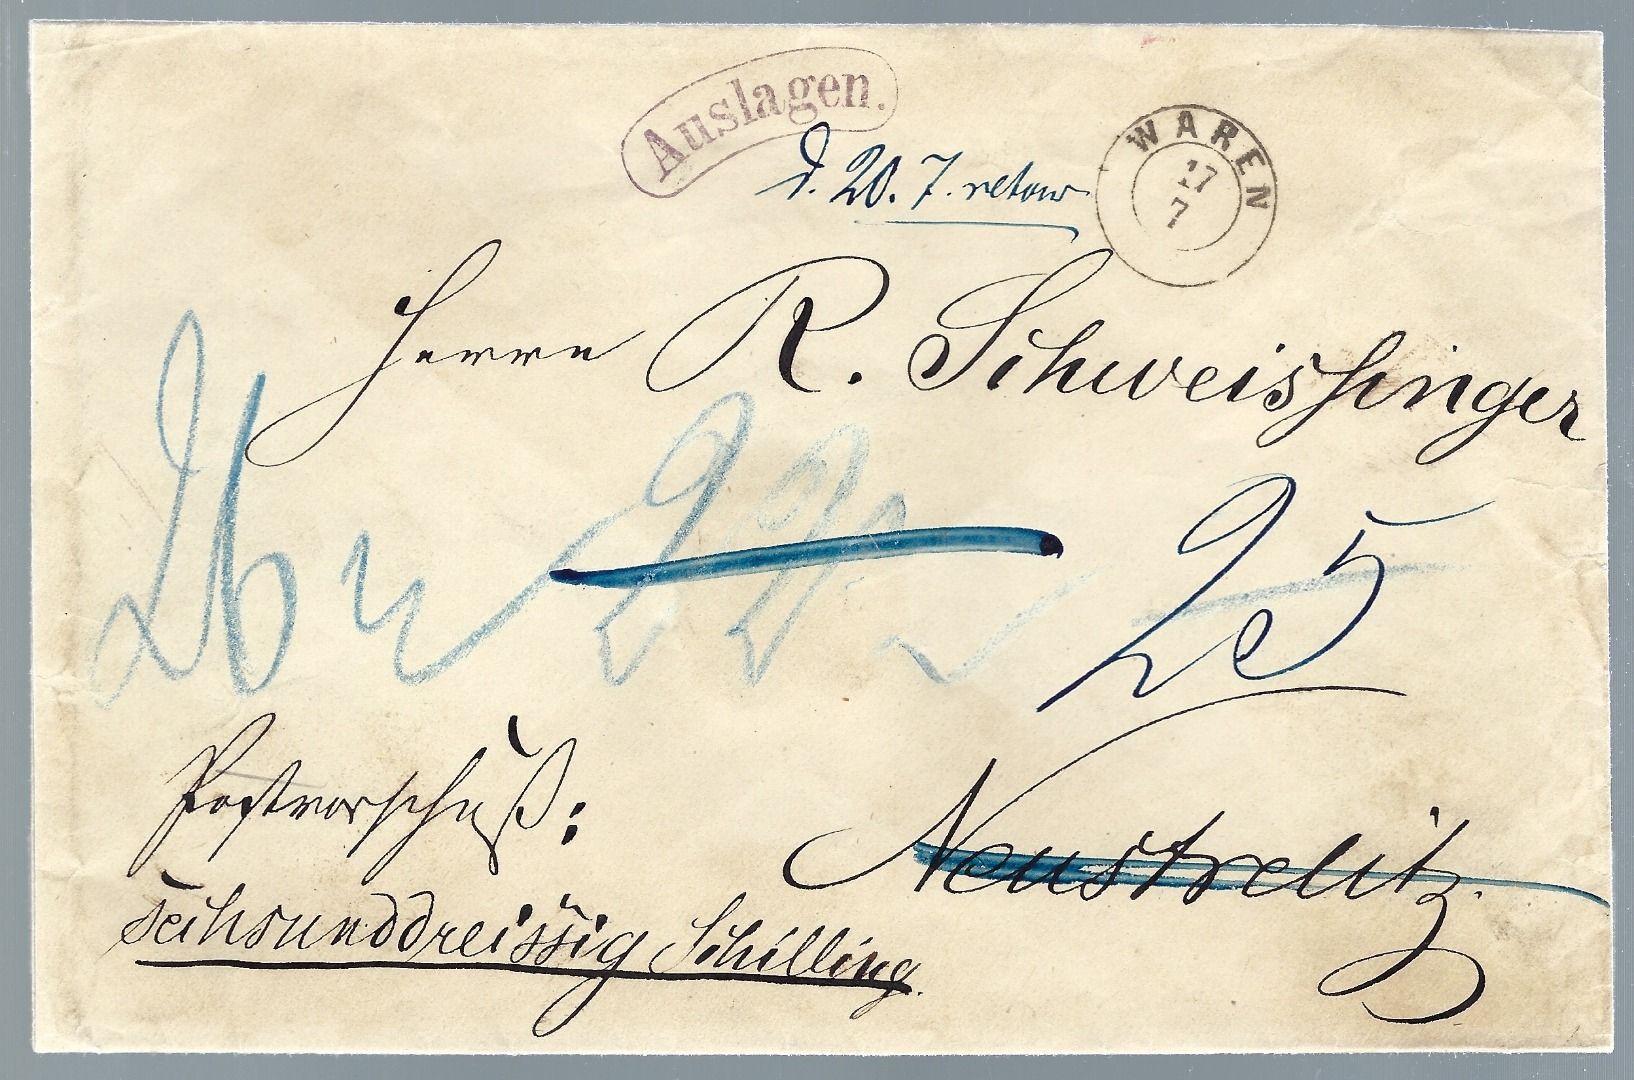 Auslagen.
d. 20. 7. retour
WAREN
17
7
Herrn R. Schweissinger
26
25
Postvorschuß:
sechsunddreissig Schilling.
Neustrelitz.